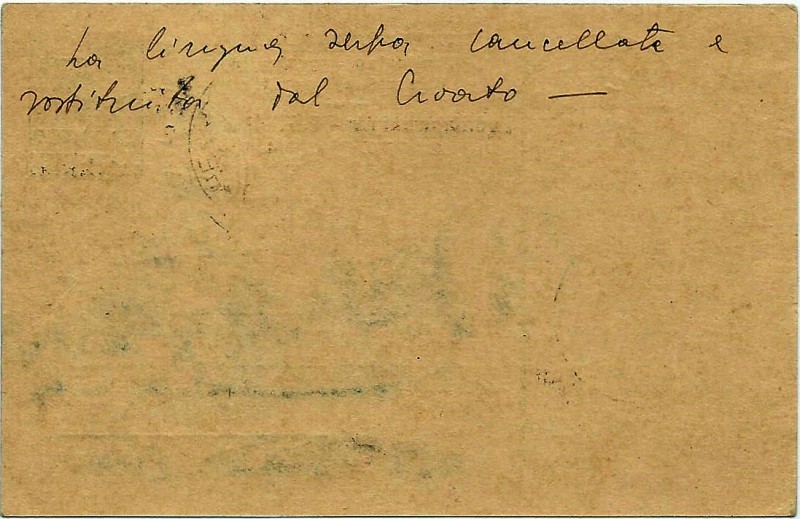 La lingua serba cancellata e
sostituita dal Croato —